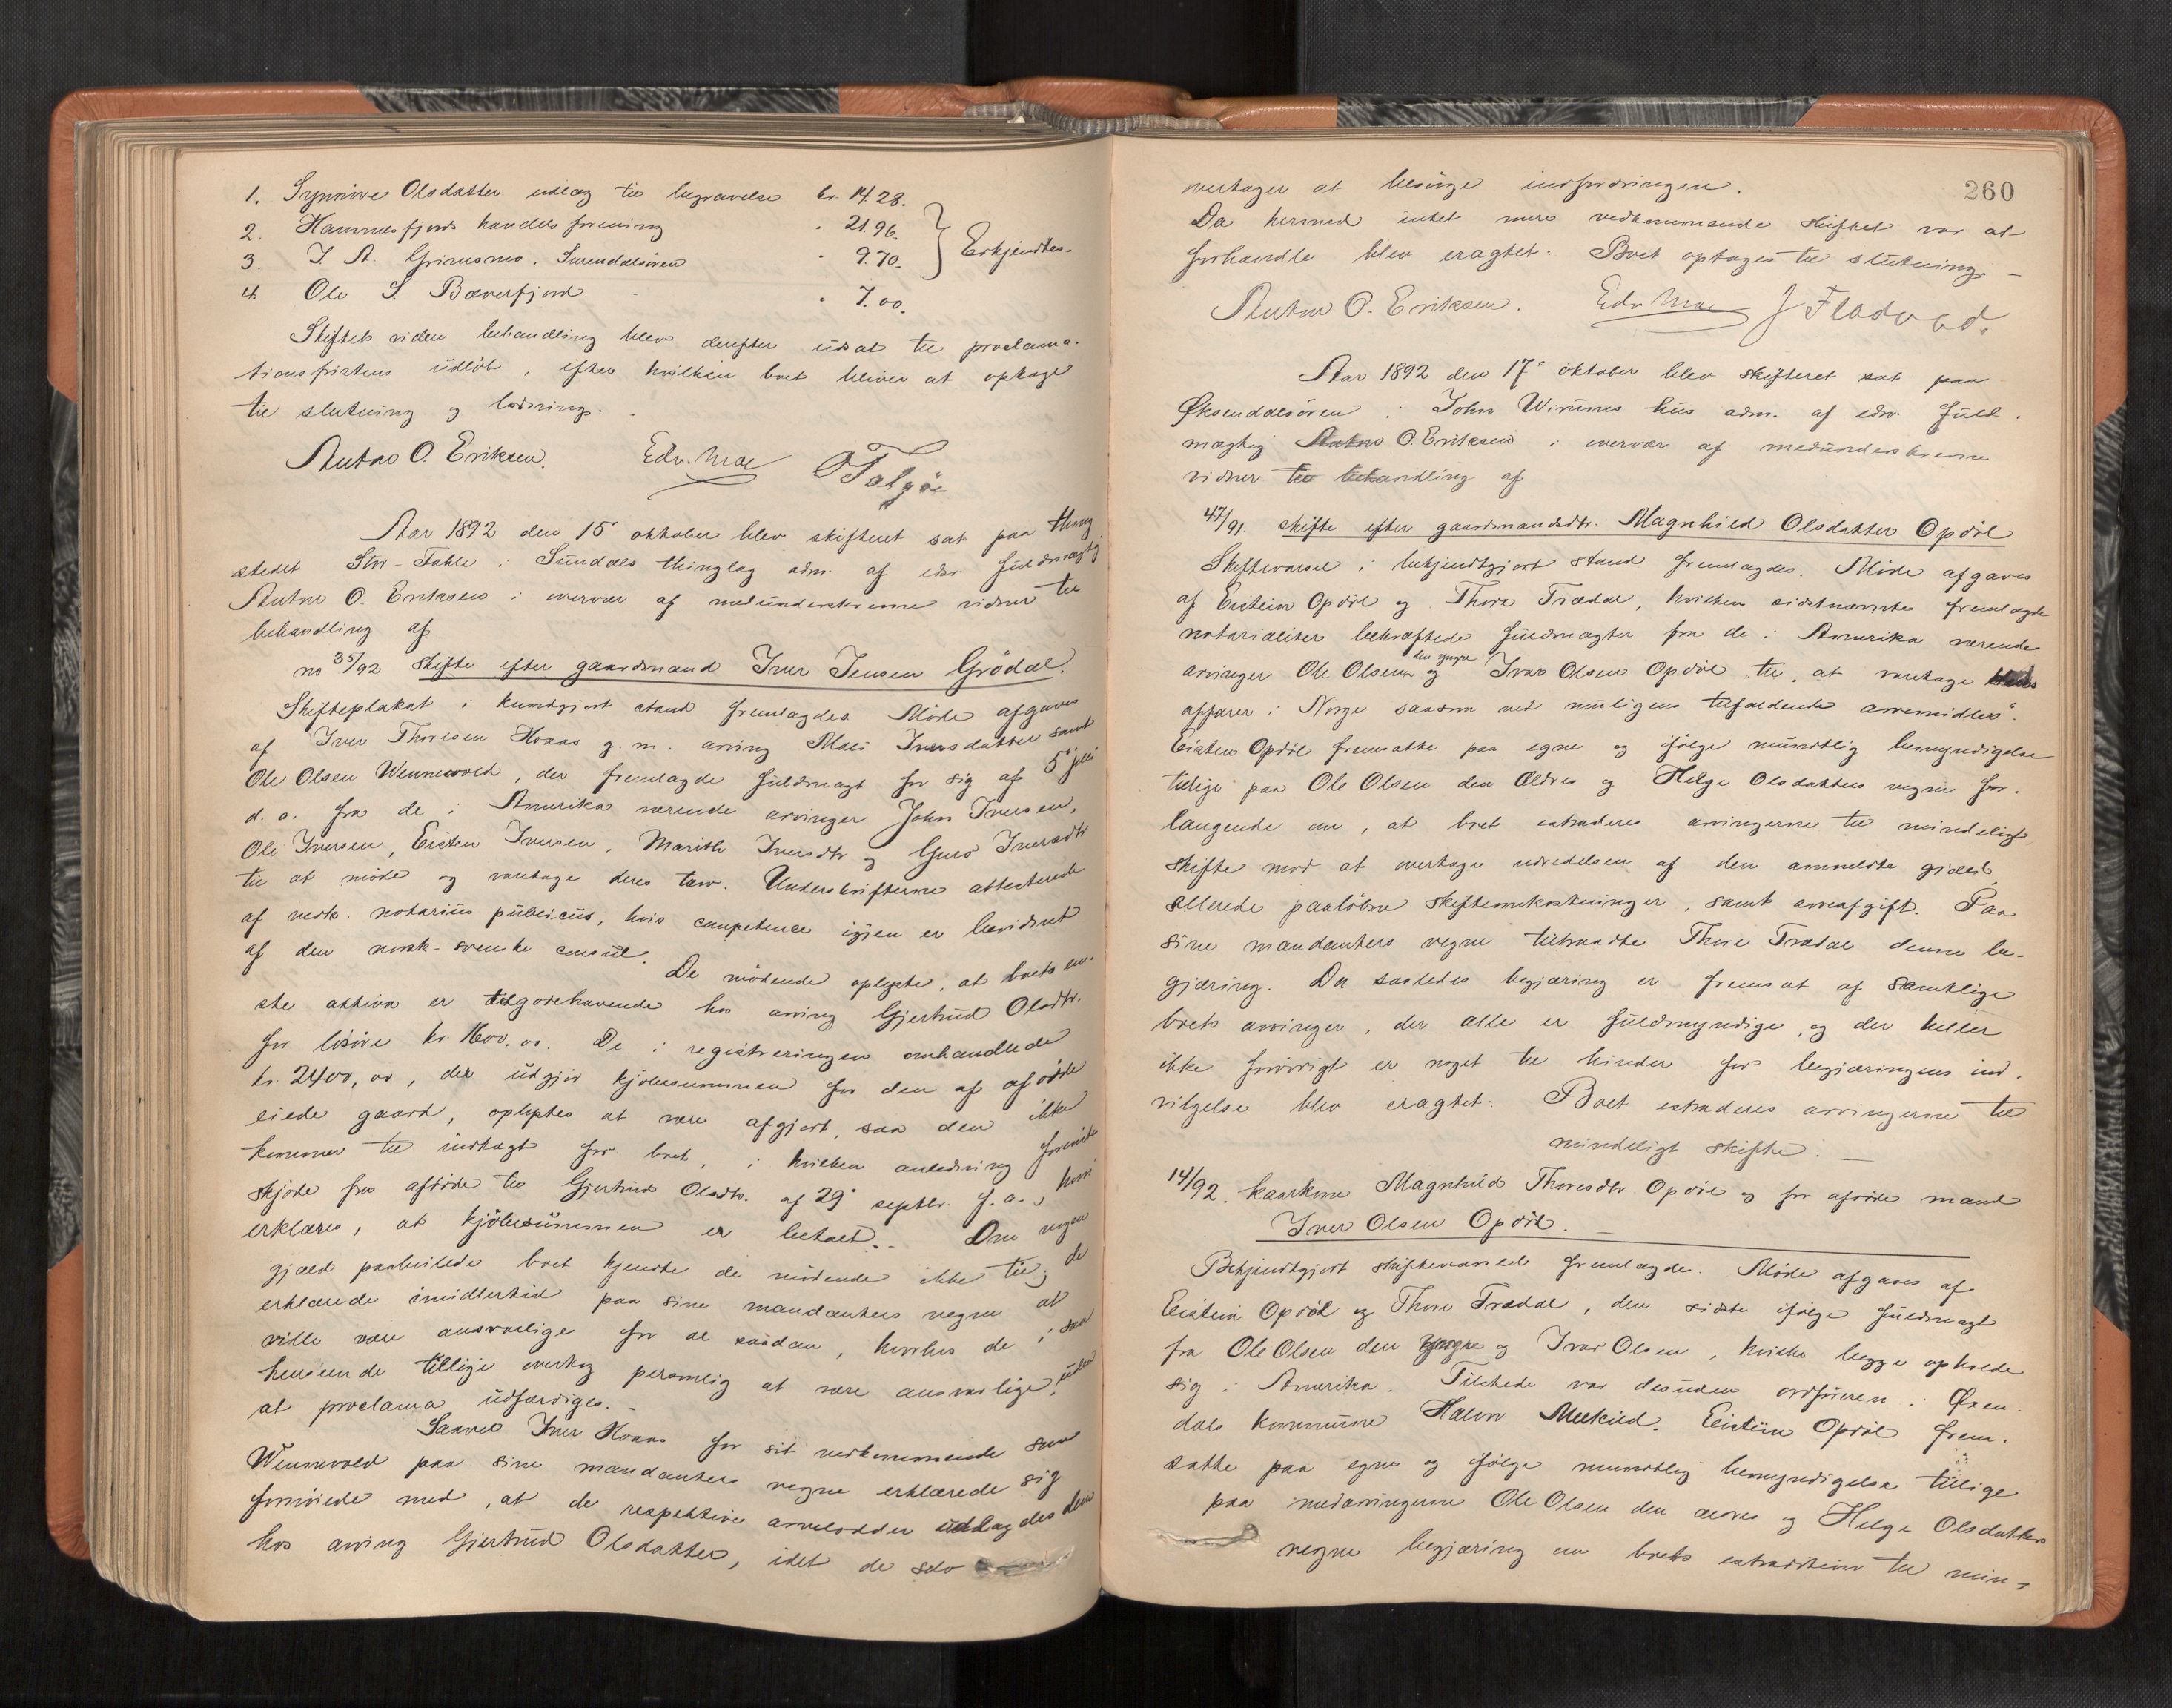 1. Synnive Olsdatter udlæg til begravelse kr. 14.28.
2. Hammesfjords handelsforening " 21.96.
3. I A. Grimsmo, Surendalsøren " 9.70. Erkjendtes.
4. Ole S. Bæverfjord " 7.00.
Skiftets viden behandling blev derefter udsat til proclama-
tionsfristens udløb, efter hvilken boet bliver at optage
til slutning og lodning.
Anton O. Eriksen. Edv. Moe
Aar 1892 den 15 oktober blev skifteret sat paa thing
stedet Stor-Fahle i Sunddals thinglag adm. af edsv. fuldmægtig
Anton O. Eriksen i overvær af medunderskrevne vidner til
behandling af
no 33/92 skifte efter gaardmand Iver Jensen Grødal.
Skifteplakat i kundgjort stand fremlagdes. Møde afgaves
af Iver Thoresen Hoaas g. m. arving Mali Iversdatter samt
Ole Olsen Wennevold, der fremlagde fuldmagt for sig af 5 juli
d. a. fra de i Amerika værende arvinger John Iversen,
Ole Iversen, Eisten Iversen, Marith Iversdtr og Guro Iversdtr
til at møde og varetage deres tarv. Underskrifterne attesterede
af vedk. notarius publicus, hvis competence igjen er bevidnet
af den norsk-svenske consul. De mødende oplyste, at boets ene-
ste aktiva er tilgodehavende hos arving Gjertrud Olsdtr.
for løsøre kr. 1600.00. De i registreringen omhandlede
kr. 2400,00, der udgjør kjøbesummen for den af afdøde
eiede gaard, oplystes at være afgjort, saa den ikke
kommer til indtægt for boet, i hvilken anledning forevistes
skjøde fra afdøde til Gjertrud Olsdtr. af 29 septbr. f. a., hvori
erklæres, at kjøbesummen er betalt. Om nogen
gjæld paahvilede boet kjendte de mødende ikke til; de
erklærede imidlertid paa sine mandanters vegne at
ville være ansvarlige for al saadan, hvorhos de i saa
henseende tillige overtog personlig at være ansvarlige, uden
at proclama udfærdiges.
Saavel Iver Hoaas for sit vedkommende som
Wennevold paa sine mandanters vegne erklærede sig
fornøiede med, at de respektive arvelodder udlagdes dem
hos arving Gjertrud Olsdatter, idet de selv
260
overtager at besørge indfordringen.
Da hermed intet mere vedkommende skiftet var at
forhandle blev eragtet: Boet optages til slutning. –
Anton O. Eriksen. Edv Moe J Fladvad.
Aar 1892 den 17 oktober blev skifteret sat paa
Øksendalsøren i John Wirums hus adm. af edsv. fuld-
mægtig Anton O. Eriksen i overvær af medunderskrevne
vidner til behandling af
47/91. skifte efter gaardmandsdtr. Magnhild Olsdatter Opdøl
Skiftevarsel i bekjendtgjort stand fremlagdes. Møde afgaves
af Eistein Opdøl og Thore Trædal, hvilken sidstnævnte fremlagde
notarialiter bekræftede fuldmagter fra de i Amerika værende
arvinger Ole Olsen den yngre og Ivar Olsen Opdøl til "at varetage
affærer i Norge saasom ved muligens tilfaldende arvemidler".
Eisten Opdøl fremsatte paa egne og ifølge mundtlig bemyndigelse
tillige paa Ole Olsen den Ældres og Helge Olsdatters vegne for-
langende om, at boet extraderes arvingerne til mindeligt
skifte mod at overtage udredelsen af den anmeldte gjæld,
allerede paaløbne skifteomkostninger, samt arveafgift. Paa
sine mandanters vegne tiltraadte Thore Trædal denne be-
gjæring. Da saaledes begjæring er fremsat af samtlige
boets arvinger, der alle er fuldmyndige, og der heller
ikke forøvrigt er noget til hinder for begjæringens ind-
vilgelse blev eragtet: Boet extraderes arvingerne til
mindeligt skifte. –
14/92. kaarkone Magnhild Thoresdtr Opdøl og for afdøde mand
Iver Olsen Opdøl. –
Bekjendtgjort skiftevarsel fremlagde. Møde afgaves af
Eistein Opdøl og Thore Trædal, den sidste ifølge fuldmagt
fra Ole Olsen den yngre og Ivar Olsen, hvilke begge opholde
sig i Amerika. Tilstede var desuden ordføreren i Øxen-
dals kommune Halvor Melkild. Eistein Opdøl frem-
satte paa egne og ifølge mundtlig bemyndigelse tillige
paa medarvingerne Ole Olsen den ældres og Helge Olsdatters
vegne begjæring om boets extradition til min-